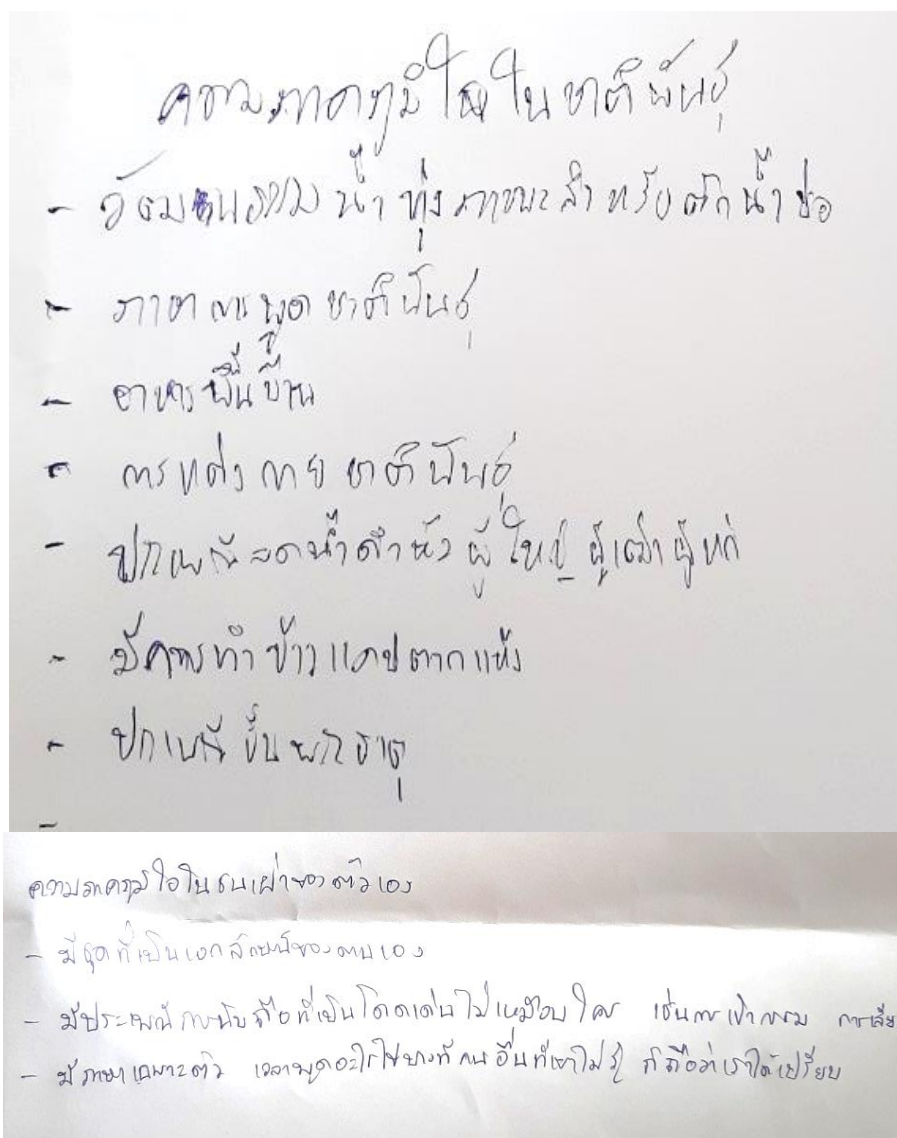 ความภาคภูมิใจในชาติพันธุ์
- วัฒนธรรมน้ำทุ่งภาชนะสำหรับตักน้ำบ่อ
- ภาษาการพูดชาติพันธุ์
- อาหารพื้นบ้าน
- การแต่งกายชาติพันธุ์
- ปกเพณีลดน้ำดำหัวผู้ใหญ่ ผู้เฒ่าผู้แก่
- มีการทำข้าวแคปตากแห้ง
- ปกเพณีขึ้นพระธาตุ
-
ความภาคภูมิใจในชนเผ่าของตัวเอง
- มีชุดที่เป็นเอกลักษณ์ของตนเอง
- มีประเพณีการนับถือที่เป็นโดดเด่นไม่เหมือนใคร เช่นการเข้ากรรม การเลี้ย
- มีภาษาเฉพาะตัว เวลาพูดอะไรไปบางทีคนอื่นที่เขาไม่รู้ ก็ถือว่าเราได้เปรียบ